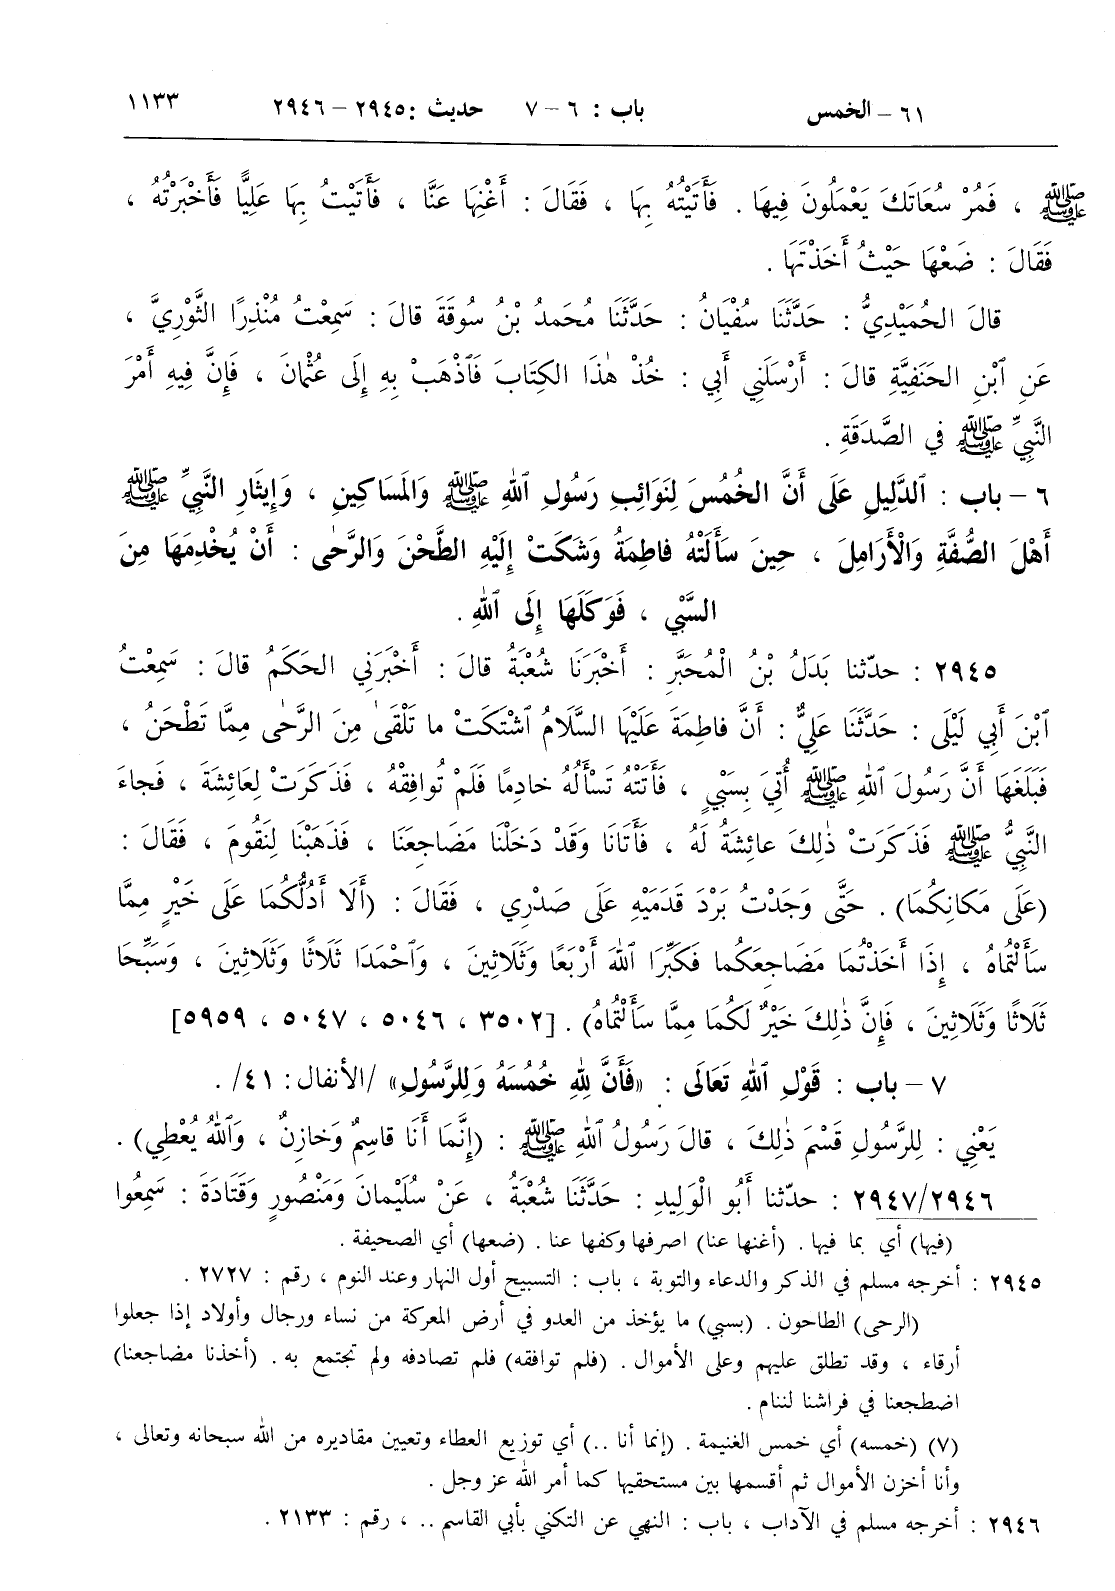 ٦١ - الخمس باب : ٦ - ٧ حديث : ٢٩٤٥ - ٢٩٤٦ ١١٣٣
ﷺ ، فَمُرْ سُعَاتَكَ يَعْمَلُونَ فِيهَا . فَأَتَيْتُهُ بِهَا ، فَقَالَ : أَغْنِهَا عَنَّا ، فَأَتَيْتُ بِهَا عَلِيًّا فَأَخْبَرْتُهُ ،
فَقَالَ : ضَعْهَا حَيْثُ أَخَذْتَهَا .
قالَ الحُمَيْدِيُّ : حَدَّثَنَا سُفْيَانُ : حَدَّثَنَا مُحَمدُ بْنُ سُوقَةَ قالَ : سَمِعْتُ مُنْذِرًا الثَّوْرِيَّ ،
عَنِ ٱبْنِ الحَنَفِيَّةِ قالَ : أَرْسَلَنِي أَبِي : خُذْ هٰذَا الكِتَابَ فَٱذْهَبْ بِهِ إِلَى عُثْمانَ ، فَإِنَّ فِيهِ أَمْرَ
النَّبِيِّ ﷺ في الصَّدَقَةِ .
٦ - باب : ٱلدَّلِيلِ عَلَى أَنَّ الخُمُسَ لِنَوَائِبِ رَسُولِ ٱللهِ ﷺ وَالمَسَاكِينِ ، وَإِيثَارِ النَّبِيِّ ﷺ
أَهْلَ الصُّفَّةِ وَالْأَرَامِلَ ، حِينَ سَأَلَتْهُ فاطِمَةُ وَشَكَتْ إِلَيْهِ الطَّحْنَ وَالرَّحٰى : أَنْ يُخْدِمَهَا مِنَ
السَّبْيِ ، فَوَكَلَهَا إِلَى ٱللهِ .
٢٩٤٥ : حدّثنا بَدَلُ بْنُ الْمُحَبَّرِ : أَخْبَرَنَا شُعْبَةُ قالَ : أَخْبَرَنِي الحَكَمُ قالَ : سَمِعْتُ
ٱبْنَ أَبِي لَيْلَى : حَدَّثَنَا عَلِيٌّ : أَنَّ فاطِمَةَ عَلَيْهَا السَّلَامُ ٱشْتَكَتْ ما تَلْقَىٰ مِنَ الرَّحٰى مِمَّا تَطْحَنُ ،
فَبَلَغَهَا أَنَّ رَسُولَ ٱللهِ ﷺ أُتِيَ بِسَبْيٍ ، فَأَتَتْهُ تَسْأَلُهُ خادِمًا فَلَمْ تُوافِقْهُ ، فَذَكَرَتْ لِعَائِشَةَ ، فَجاءَ
النَّبِيُّ ﷺ فَذَكَرَتْ ذٰلِكَ عائِشَةُ لَهُ ، فَأَتَانَا وَقَدْ دَخَلْنَا مَضَاجِعَنَا ، فَذَهَبْنَا لِنَقُومَ ، فَقَالَ :
(عَلَى مَكانِكُمَا) . حَتَّى وَجَدْتُ بَرْدَ قَدَمَيْهِ عَلَى صَدْرِي ، فَقَالَ : (أَلَا أَدُلُّكُمَا عَلَى خَيْرٍ مِمَّا
سَأَلْتُمَاهُ ، إِذَا أَخَذْتُمَا مَضَاجِعَكُما فَكَبِّرَا ٱللهَ أَرْبَعًا وَثَلَاثِينَ ، وَٱحْمَدَا ثَلَاثًا وَثَلَاثِينَ ، وَسَبِّحَا
ثَلَاثًا وَثَلَاثِينَ ، فَإِنَّ ذٰلِكَ خَيْرٌ لَكُمَا مِمَّا سَأَلْتُمَاهُ) . [٣٥٠٢ ، ٥٠٤٦ ، ٥٠٤٧ ، ٥٩٥٩]
٧ - باب : قَوْلِ ٱللهِ تَعَالَى : «فَأَنَّ لِلهِ خُمُسَهُ وَلِلرَّسُولِ» /الأنفال : ٤١/ .
يَعْنِي : لِلرَّسُولِ قَسْمَ ذٰلِكَ ، قالَ رَسُولُ ٱللهِ ﷺ : (إِنَّمَا أَنَا قاسِمٌ وَخازِنٌ ، وَٱللهُ يُعْطِي) .
٢٩٤٧/٢٩٤٦ : حدّثنا أَبُو الْوَلِيدِ : حَدَّثَنَا شُعْبَةُ ، عَنْ سُلَيْمانَ وَمَنْصُورٍ وَقَتَادَةَ : سَمِعُوا
(فيها) أي بما فيها . (أغنها عنا) اصرفها وكفها عنا . (ضعها) أي الصحيفة .
٢٩٤٥ : أخرجه مسلم في الذكر والدعاء والتوبة ، باب : التسبيح أول النهار وعند النوم ، رقم : ٢٧٢٧ .
(الرحى) الطاحون . (بسبي) ما يؤخذ من العدو في أرض المعركة من نساء ورجال وأولاد إذا جعلوا
أرقاء ، وقد تطلق عليهم وعلى الأموال . (فلم توافقه) فلم تصادفه ولم تجتمع به . (أخذنا مضاجعنا)
اضطجعنا في فراشنا لننام .
(٧) (خمسه) أي خمس الغنيمة . (إنما أنا ..) أي توزيع العطاء وتعيين مقاديره من الله سبحانه وتعالى ،
وأنا أخزن الأموال ثم أقسمها بين مستحقيها كما أمر الله عز وجل .
٢٩٤٦ : أخرجه مسلم في الآداب ، باب : النهي عن التكني بأبي القاسم .. ، رقم : ٢١٣٣ .